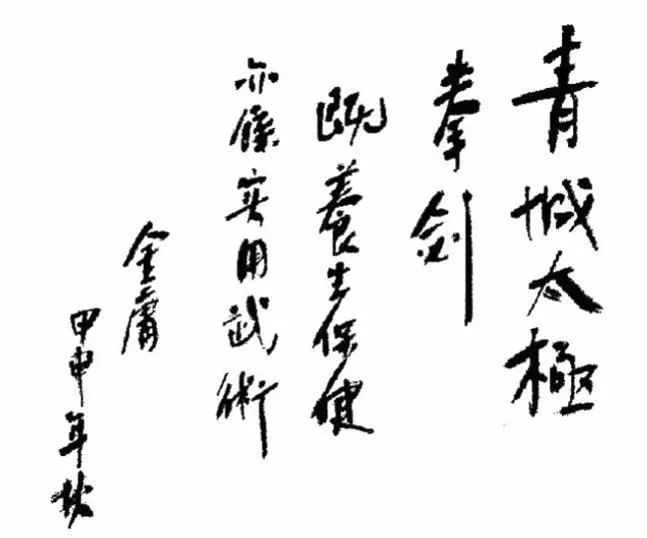 青城太極
拳剑
既養生保健
亦係实用武術
金庸
甲申年秋